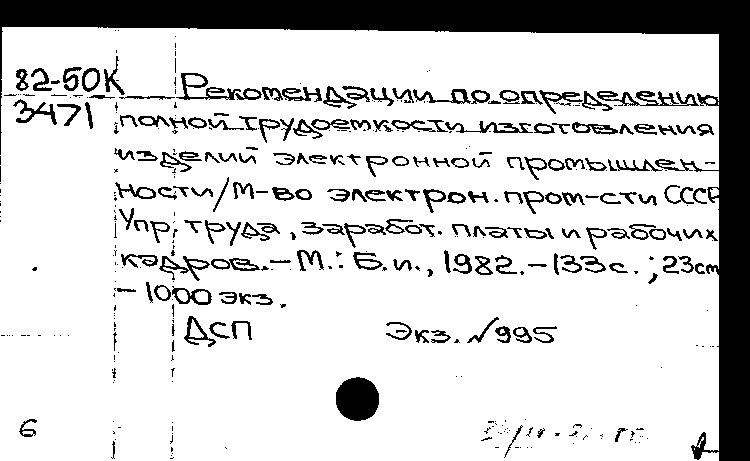 82-50К Рекомендации по определению
3471 полной трудоемкости изготовления
изделий электронной промышлен-
ности/М-во электрон. пром-сти СССР
Упр. труда, заработ. платы и рабочих
кадров. – М.: Б.и., 1982. – 133с.; 23cm
– 1000 экз.
ДСП Экз. №995
6